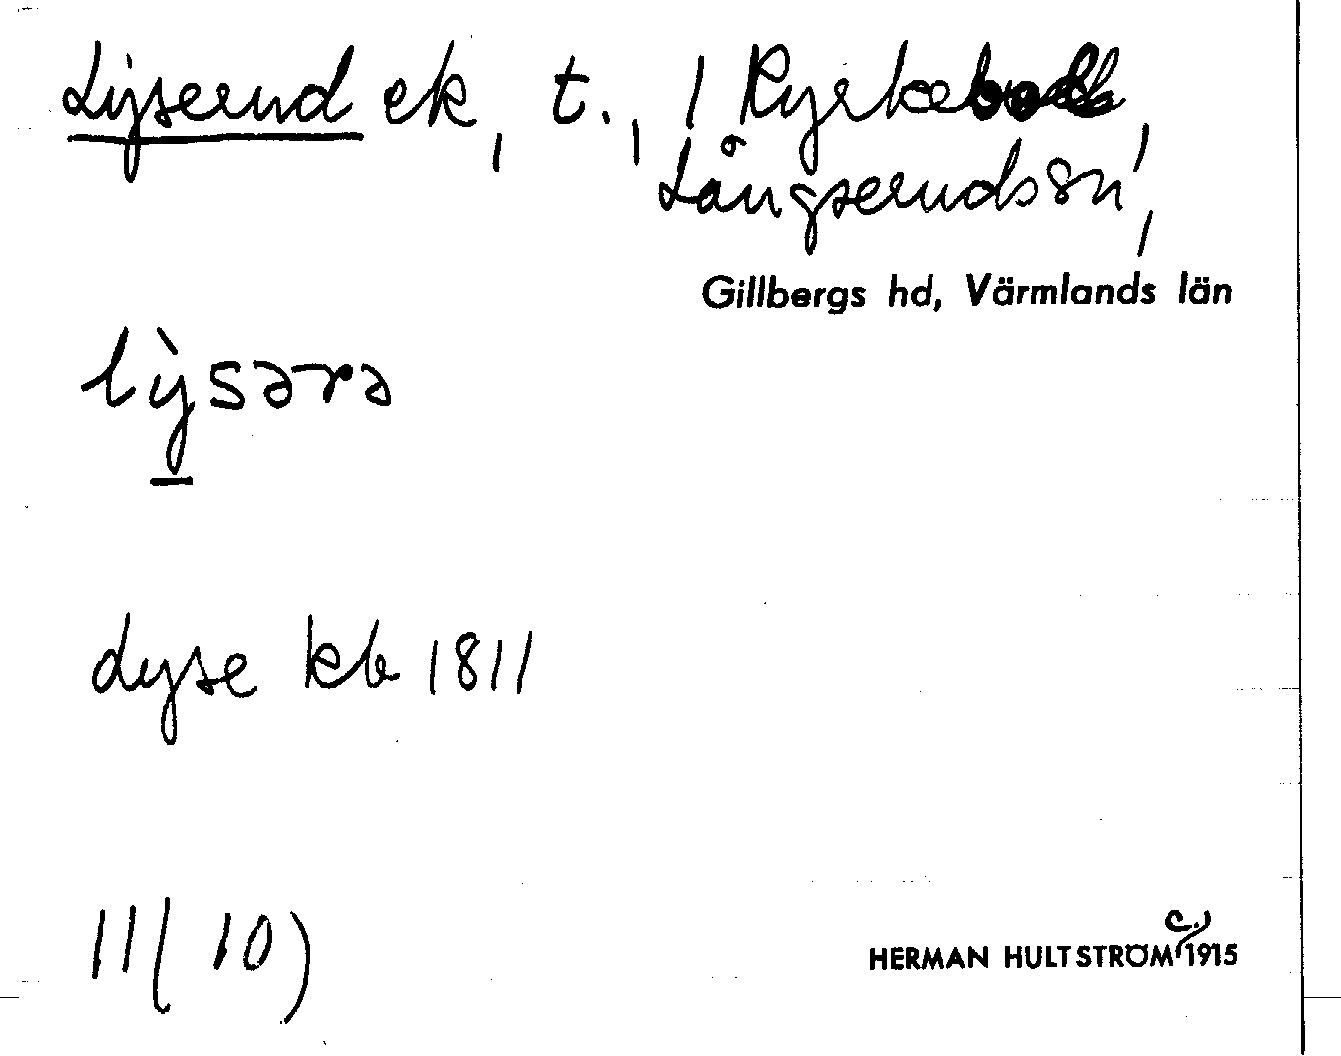 Lyserud ek, t., / Kyrkebol,
Långserud sn,
Gillbergs hd, Värmlands län
lỳsərə
Lyse kb 1811
11(10)
c.
HERMAN HULTSTRÖM 1915